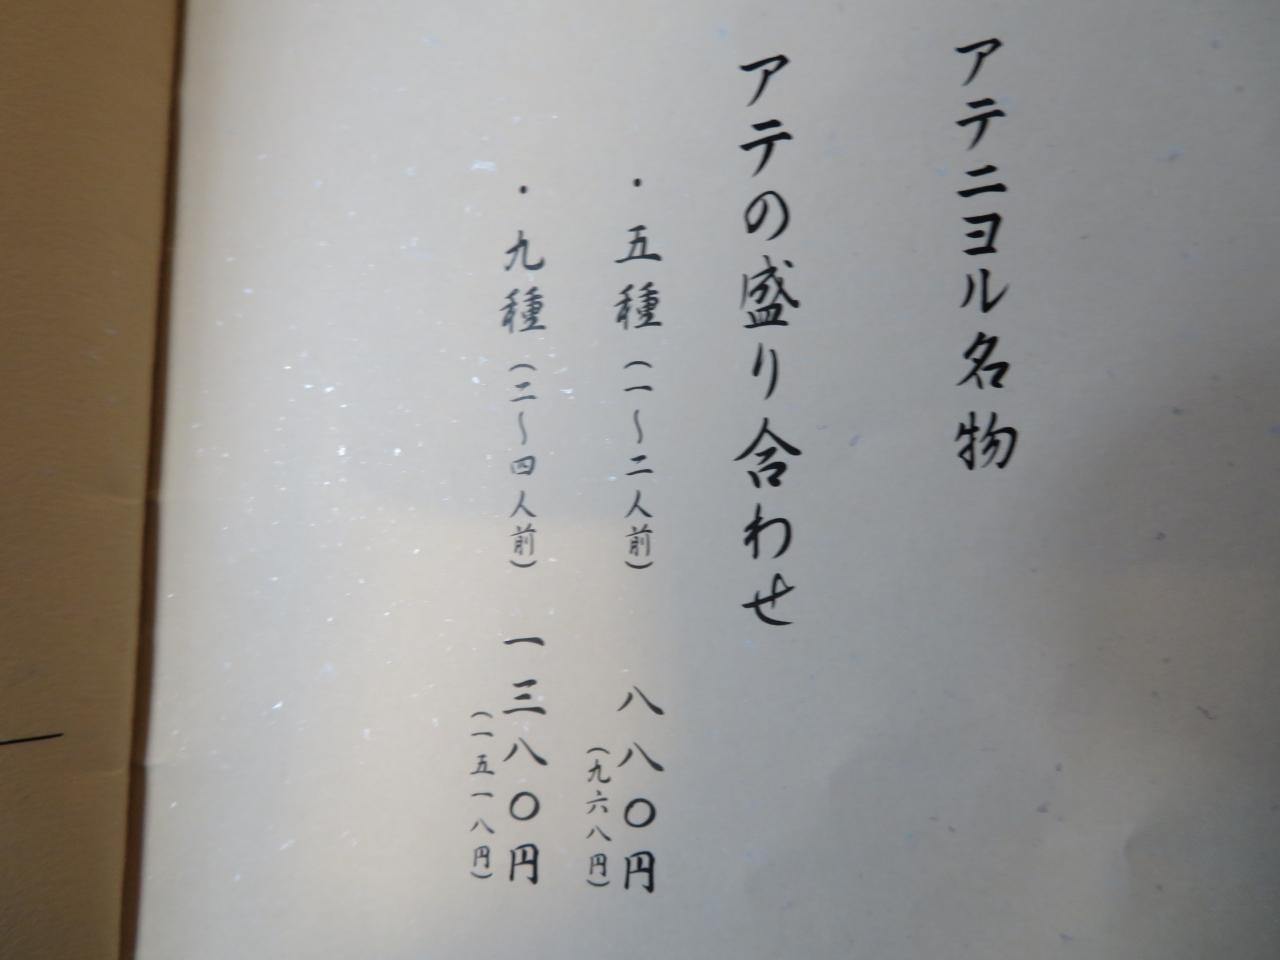 アテニヨル名物
アテの盛り合わせ
・五種（一〜二人前）　八八〇円
（九六八円）
・九種（二〜四人前）　一三八〇円
（一五一八円）